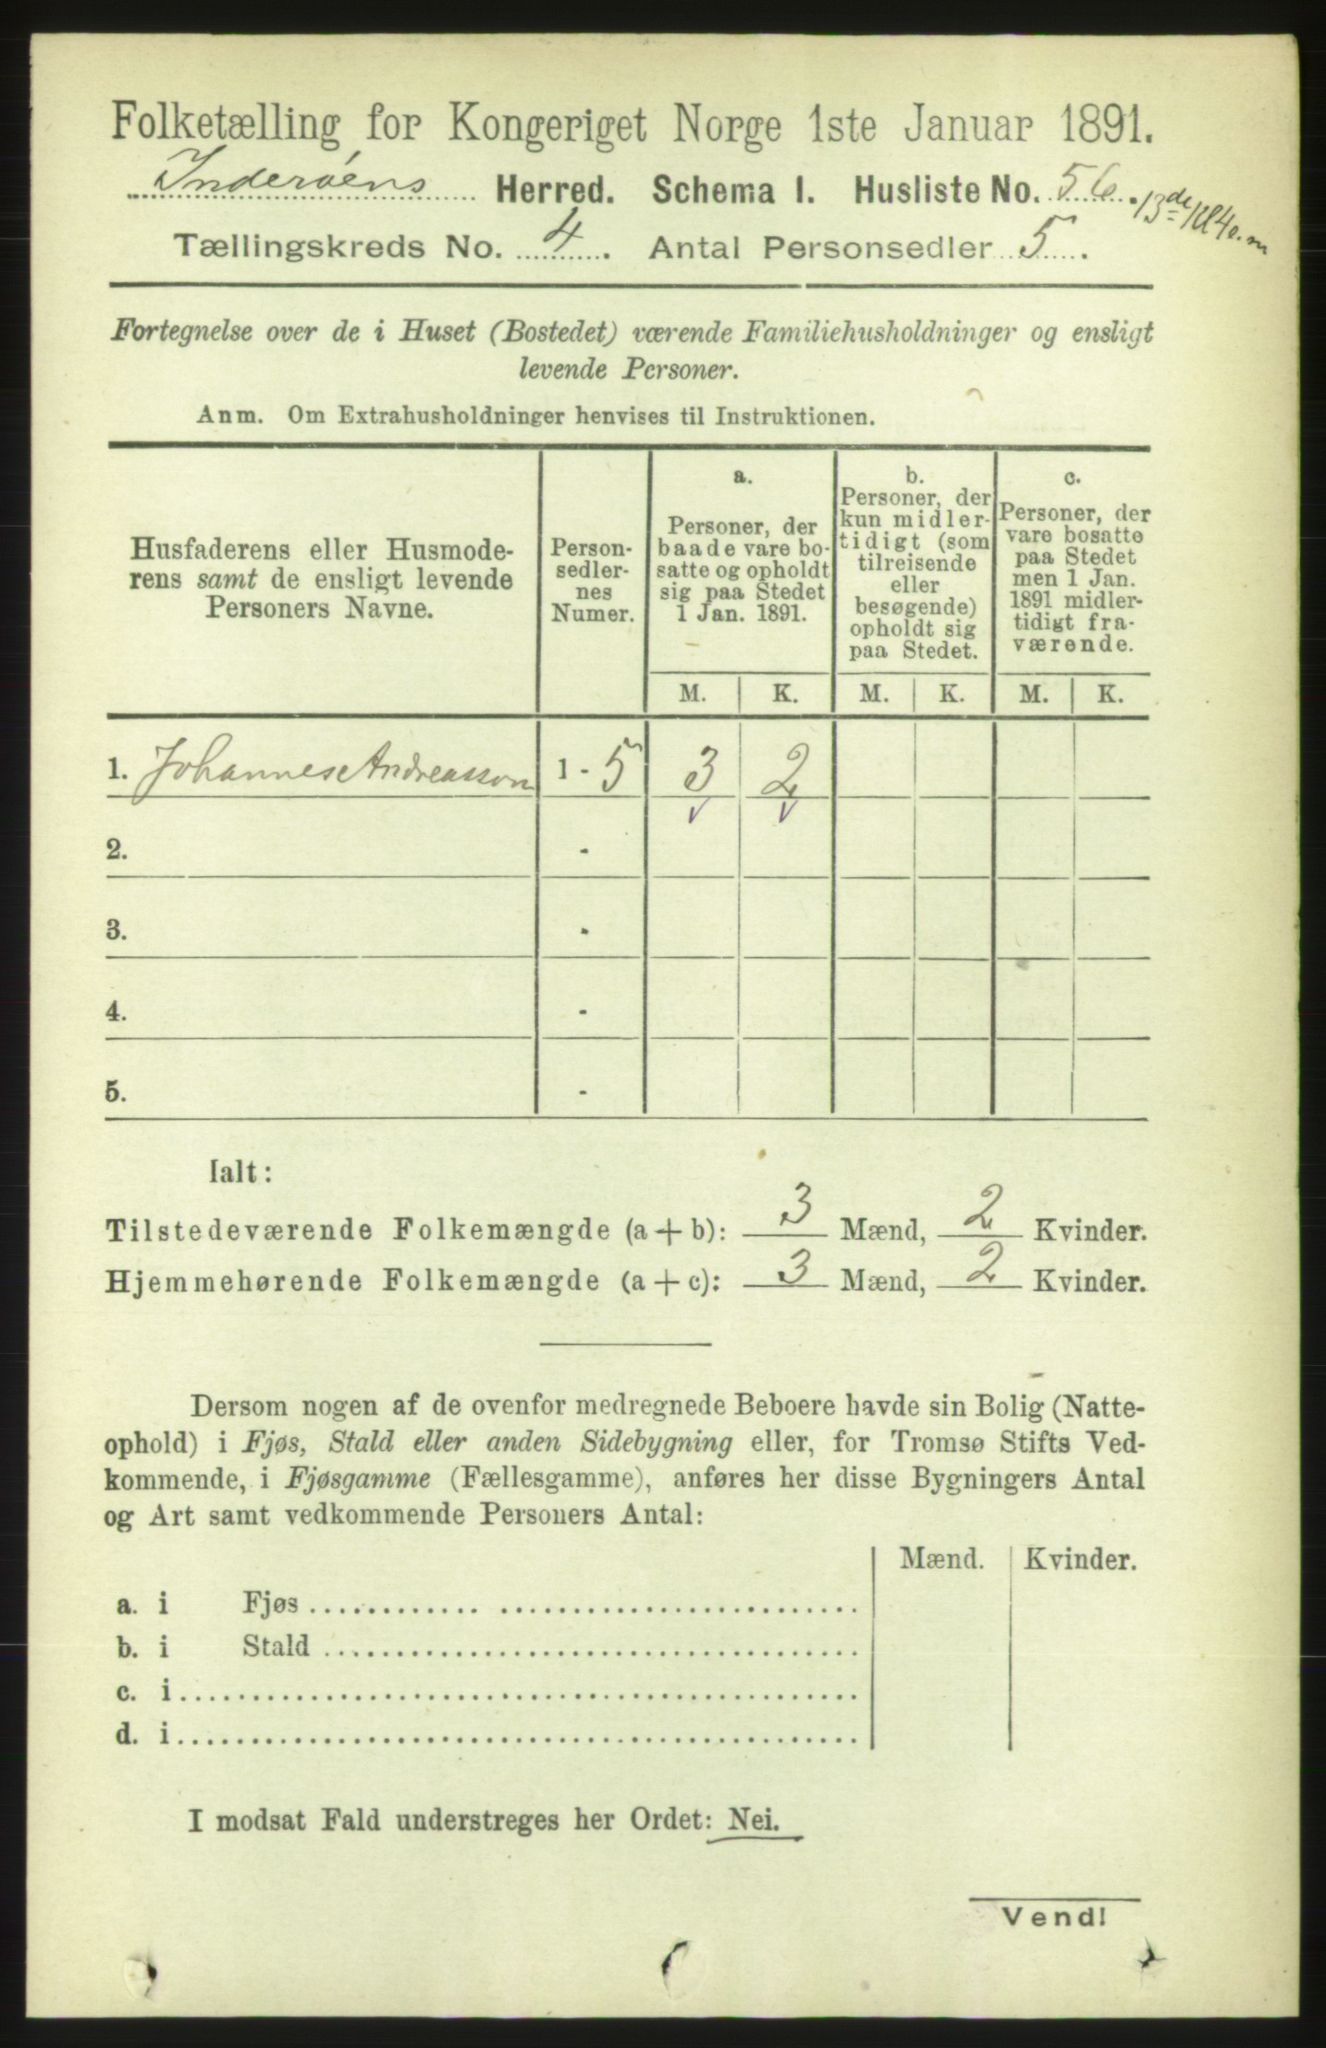 Folketælling for Kongeriget Norge 1ste Januar 1891.
Inderøens Herred. Schema I. Husliste No. 56.
Tællingskreds No. 4. Antal Personsedler 5.
Fortegnelse over de i Huset (Bostedet) værende Familiehusholdninger og ensligt
levende Personer.
Anm. Om Extrahusholdninger henvises til Instruktionen.
Husfaderens eller Husmode-
rens samt de ensligt levende
Personers Navne.
Person-
sedler-
nes
Numer.
a.
Personer, der
baade vare bo-
satte og opholdt
sig paa Stedet
1 Jan. 1891.
b.
Personer, der
kun midler-
tidigt (som
tilreisende
eller
besøgende)
opholdt sig
paa Stedet.
c.
Personer, der
vare bosatte
paa Stedet
men 1 Jan.
1891 midler-
tidigt fra-
værende.
M. K. M. K. M. K.
1. Johannes Andreasson 1 - 5 3 2
2. -
3. -
4. -
5. -
Ialt:
Tilstedeværende Folkemængde (a + b): 3 Mænd, 2 Kvinder.
Hjemmehørende Folkemængde (a + c): 3 Mænd, 2 Kvinder.
Dersom nogen af de ovenfor medregnede Beboere havde sin Bolig (Natte-
ophold) i Fjøs, Stald eller anden Sidebygning eller, for Tromsø Stifts Ved-
kommende, i Fjøsgamme (Fællesgamme), anføres her disse Bygningers Antal
og Art samt vedkommende Personers Antal:
Mænd. Kvinder.
a. i Fjøs
b. i Stald
c. i
d. i
I modsat Fald understreges her Ordet: Nei.
Vend!